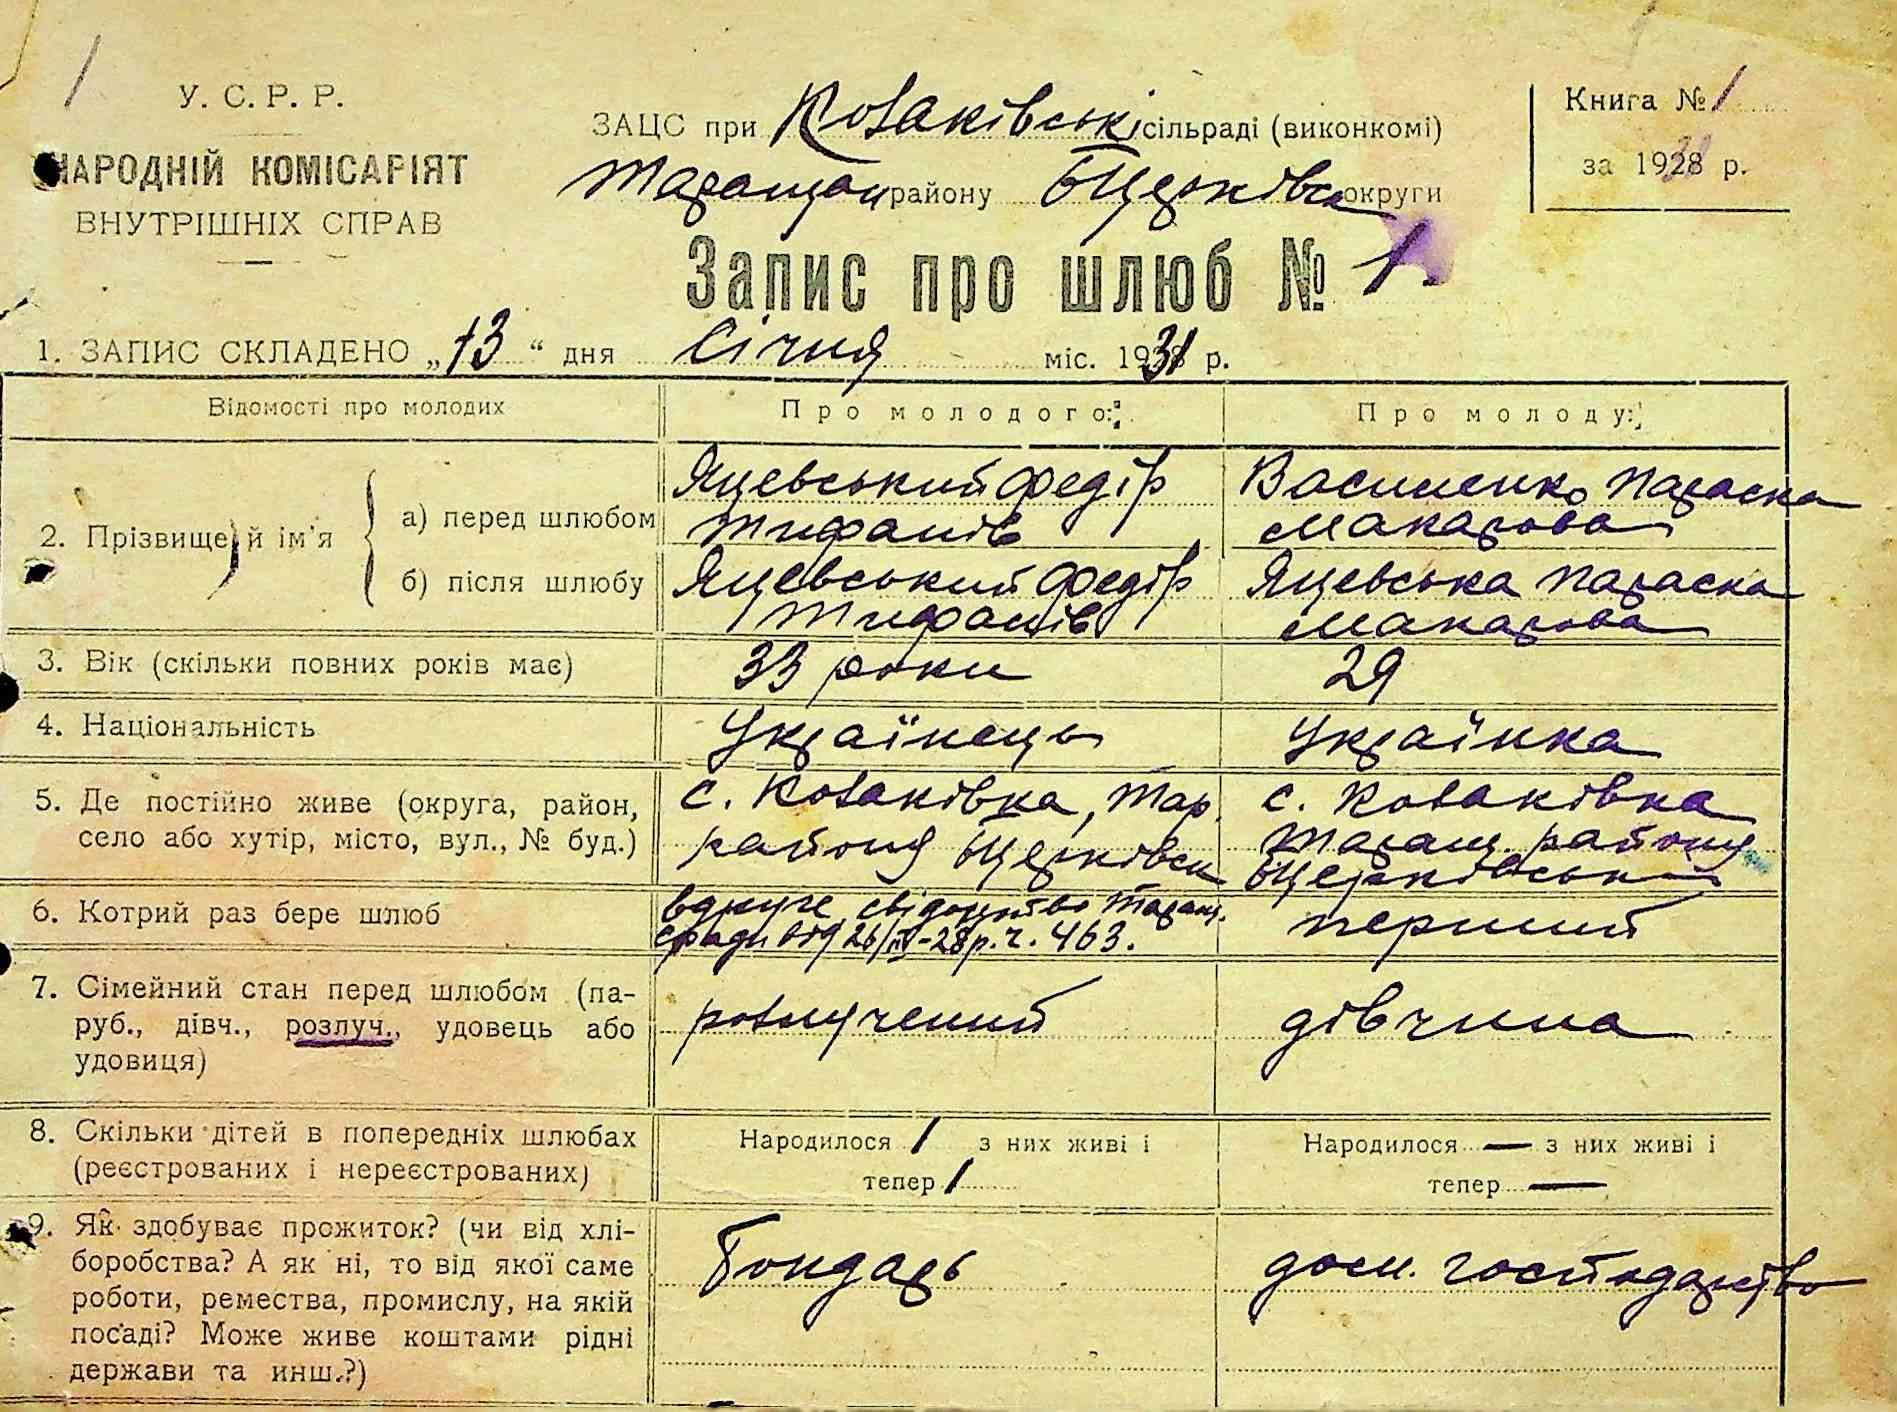 1
У. С. Р. Р.
НАРОДНІЙ КОМІСАРІЯТ
ВНУТРІШНІХ СПРАВ
ЗАЦС при Козаківські сільраді (виконкомі)
Таращан району БЦерківськ округи
Книга № 1
за 1928 р.
Запис про шлюб № 1.
1. ЗАПИС СКЛАДЕНО „13“ дня Січня міс. 1931 р.
Відомості про молодих
Про молодого:
Про молоду:
2. Прізвище й ім'я
а) перед шлюбом
Яцевський Федір
Тифанів
Василенко Параска
Макарова
б) після шлюбу
Яцевський Федір
Тифанів
Яцевська Параска
Макарова
3. Вік (скільки повних років має)
33 роки
29
4. Національність
Українець
Українка
5. Де постійно живе (округа, район,
село або хутір, місто, вул., № буд.)
с. Козаківка, Тар.
району БЦерківськ
с. Козаківка
Таращ. району
БЦерківськ
6. Котрий раз бере шлюб
вдруге, свідоцтво Таращ.
сради від 26/IV-28 р. ч. 463.
перший
7. Сімейний стан перед шлюбом (па-
руб., дівч., розлуч., удовець або
удовиця)
розлучений
дівчина
8. Скільки дітей в попередніх шлюбах
(реєстрованих і нереєстрованих)
Народилося 1 з них живі і
тепер 1
Народилося — з них живі і
тепер —
9. Як здобуває прожиток? (чи від хлі-
боробства? А як ні, то від якої саме
роботи, ремества, промислу, на якій
посаді? Може живе коштами рідні
держави та инш.?)
Бондарь
дом. господарство